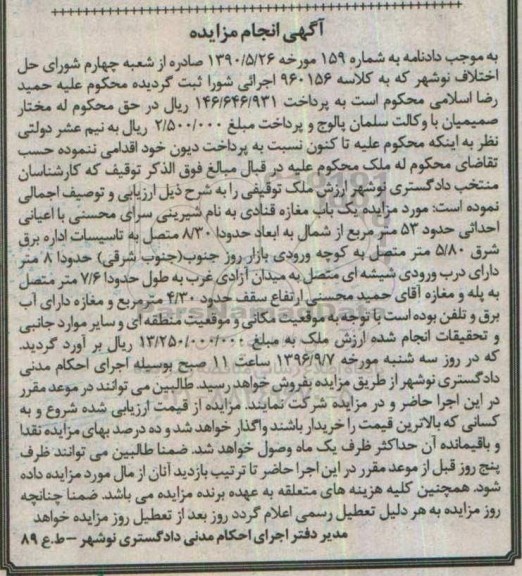 آگهی انجام مزایده
به موجب دادنامه به شماره ۱۵۹ مورخه ۱۳۹۰/۵/۲۶ صادره از شعبه چهارم شورای حل
اختلاف نوشهر که به کلاسه ۹۶۰۱۵۶ اجرائی شورا ثبت گردیده محکوم علیه حمید
رضا اسلامی محکوم است به پرداخت ۱۴۶/۶۴۶/۹۳۱ ریال در حق محکوم له مختار
صمیمیان با وکالت سلمان پالوج و پرداخت مبلغ ۲/۵۰۰/۰۰۰ ریال به نیم عشر دولتی
نظر به اینکه محکوم علیه تا کنون نسبت به پرداخت دیون خود اقدامی ننموده حسب
تقاضای محکوم له ملک محکوم علیه در قبال مبالغ فوق الذکر توقیف که کارشناسان
منتخب دادگستری نوشهر ارزش ملک توقیفی را به شرح ذیل ارزیابی و توصیف اجمالی
نموده است: مورد مزایده یک باب مغازه قنادی به نام شیرینی سرای محسنی با اعیانی
احداثی حدود ۵۳ متر مربع از شمال به ابعاد حدودا ۸/۳۰ متصل به تاسیسات اداره برق
شرق ۵/۸۰ متر متصل به کوچه ورودی بازار روز جنوب(جنوب شرقی) حدودا ۸ متر
دارای درب ورودی شیشه ای متصل به میدان آزادی غرب به طول حدودا ۷/۶ متر متصل
به پله و مغازه آقای حمید محسنی ارتفاع سقف حدود ۴/۳۰ مترمربع و مغازه دارای آب
برق و تلفن بوده است با توجه به موقعیت مکانی و موقعیت منطقه ای و سایر موارد جانبی
و تحقیقات انجام شده ارزش ملک به مبلغ ۱۳/۲۵۰/۰۰۰/۰۰۰ ریال بر آورد گردید.
که در روز سه شنبه مورخه ۱۳۹۶/۹/۷ ساعت ۱۱ صبح بوسیله اجرای احکام مدنی
دادگستری نوشهر از طریق مزایده بفروش خواهد رسید. طالبین می توانند در موعد مقرر
در این اجرا حاضر و در مزایده شرکت نمایند. مزایده از قیمت ارزیابی شده شروع و به
کسانی که بالاترین قیمت را خریدار باشند واگذار خواهد شد و ده درصد بهای مزایده نقدا
و باقیمانده آن حداکثر ظرف یک ماه وصول خواهد شد. ضمنا طالبین می توانند ظرف
پنج روز قبل از موعد مقرر در این اجرا حاضر تا ترتیب بازدید آنان از مال مورد مزایده داده
شود. همچنین کلیه هزینه های متعلقه به عهده برنده مزایده می باشد. ضمنا چنانچه
روز مزایده به هر دلیل تعطیل رسمی اعلام گردد روز بعد از تعطیل روز مزایده خواهد
مدیر دفتر اجرای احکام مدنی دادگستری نوشهر –ط.ع ۸۹